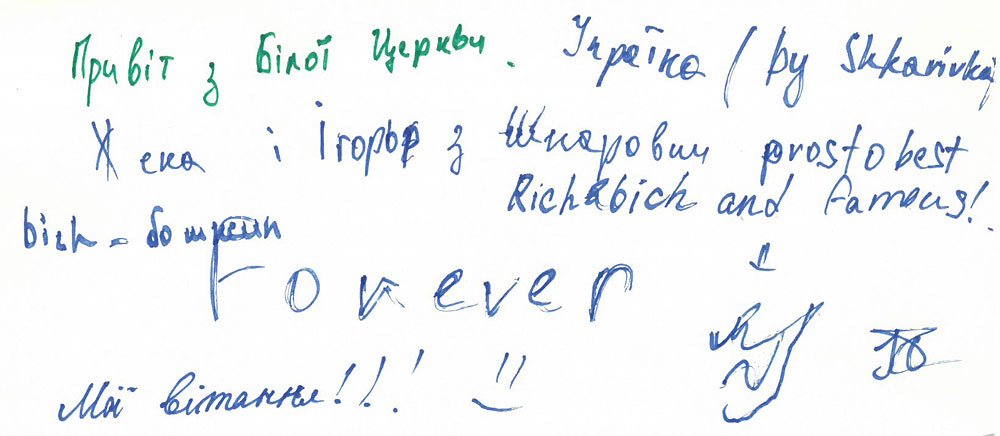 Привіт з Білої Церкви. Україна (by Shkarivka)
Жека і Ігорь з Шкаровки prosto best
Rich & bich and famous!
bich =
Forever
Мої вітання!!!